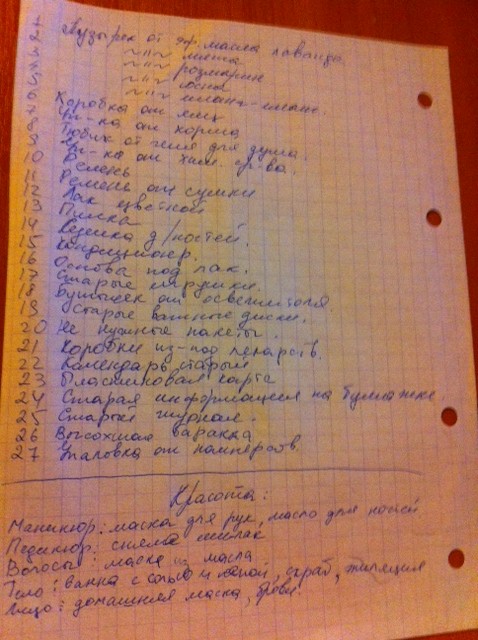 1 Пузырек от эф. масла лаванда.
2 ~"~ мята
3 ~"~ розмарин
4 ~"~ сосна
5 ~"~ иланг-иланг.
6 Коробка от яиц
7 Уп-ка от корма
8 Тюбик от геля для душа.
9 Уп-ка от хим. ср-ва.
10 Ремень
11 Ремень от сумки
12 Лак цветной
13 Пилка
14 Пилка д/ногтей.
15 Кондиционер.
16 Основа под лак.
17 Старые игрушки.
18 Бутылек от освежителя.
19 Старые ватные диски.
20 Не нужные пакеты.
21 Коробки из-под лекарств.
22 Календарь старый
23 Пластиковая карта
24 Старая информация на бумажке.
25 Старый журнал.
26 Высохшая
27 Упаковка от памперсов.
Красота:
Маникюр: маска для рук, масло для ногтей
Педикюр: сняла лак
Волосы: маска из масла
Тело: ванна с солью и пеной, скраб, эпиляция
Лицо: домашняя маска, брови